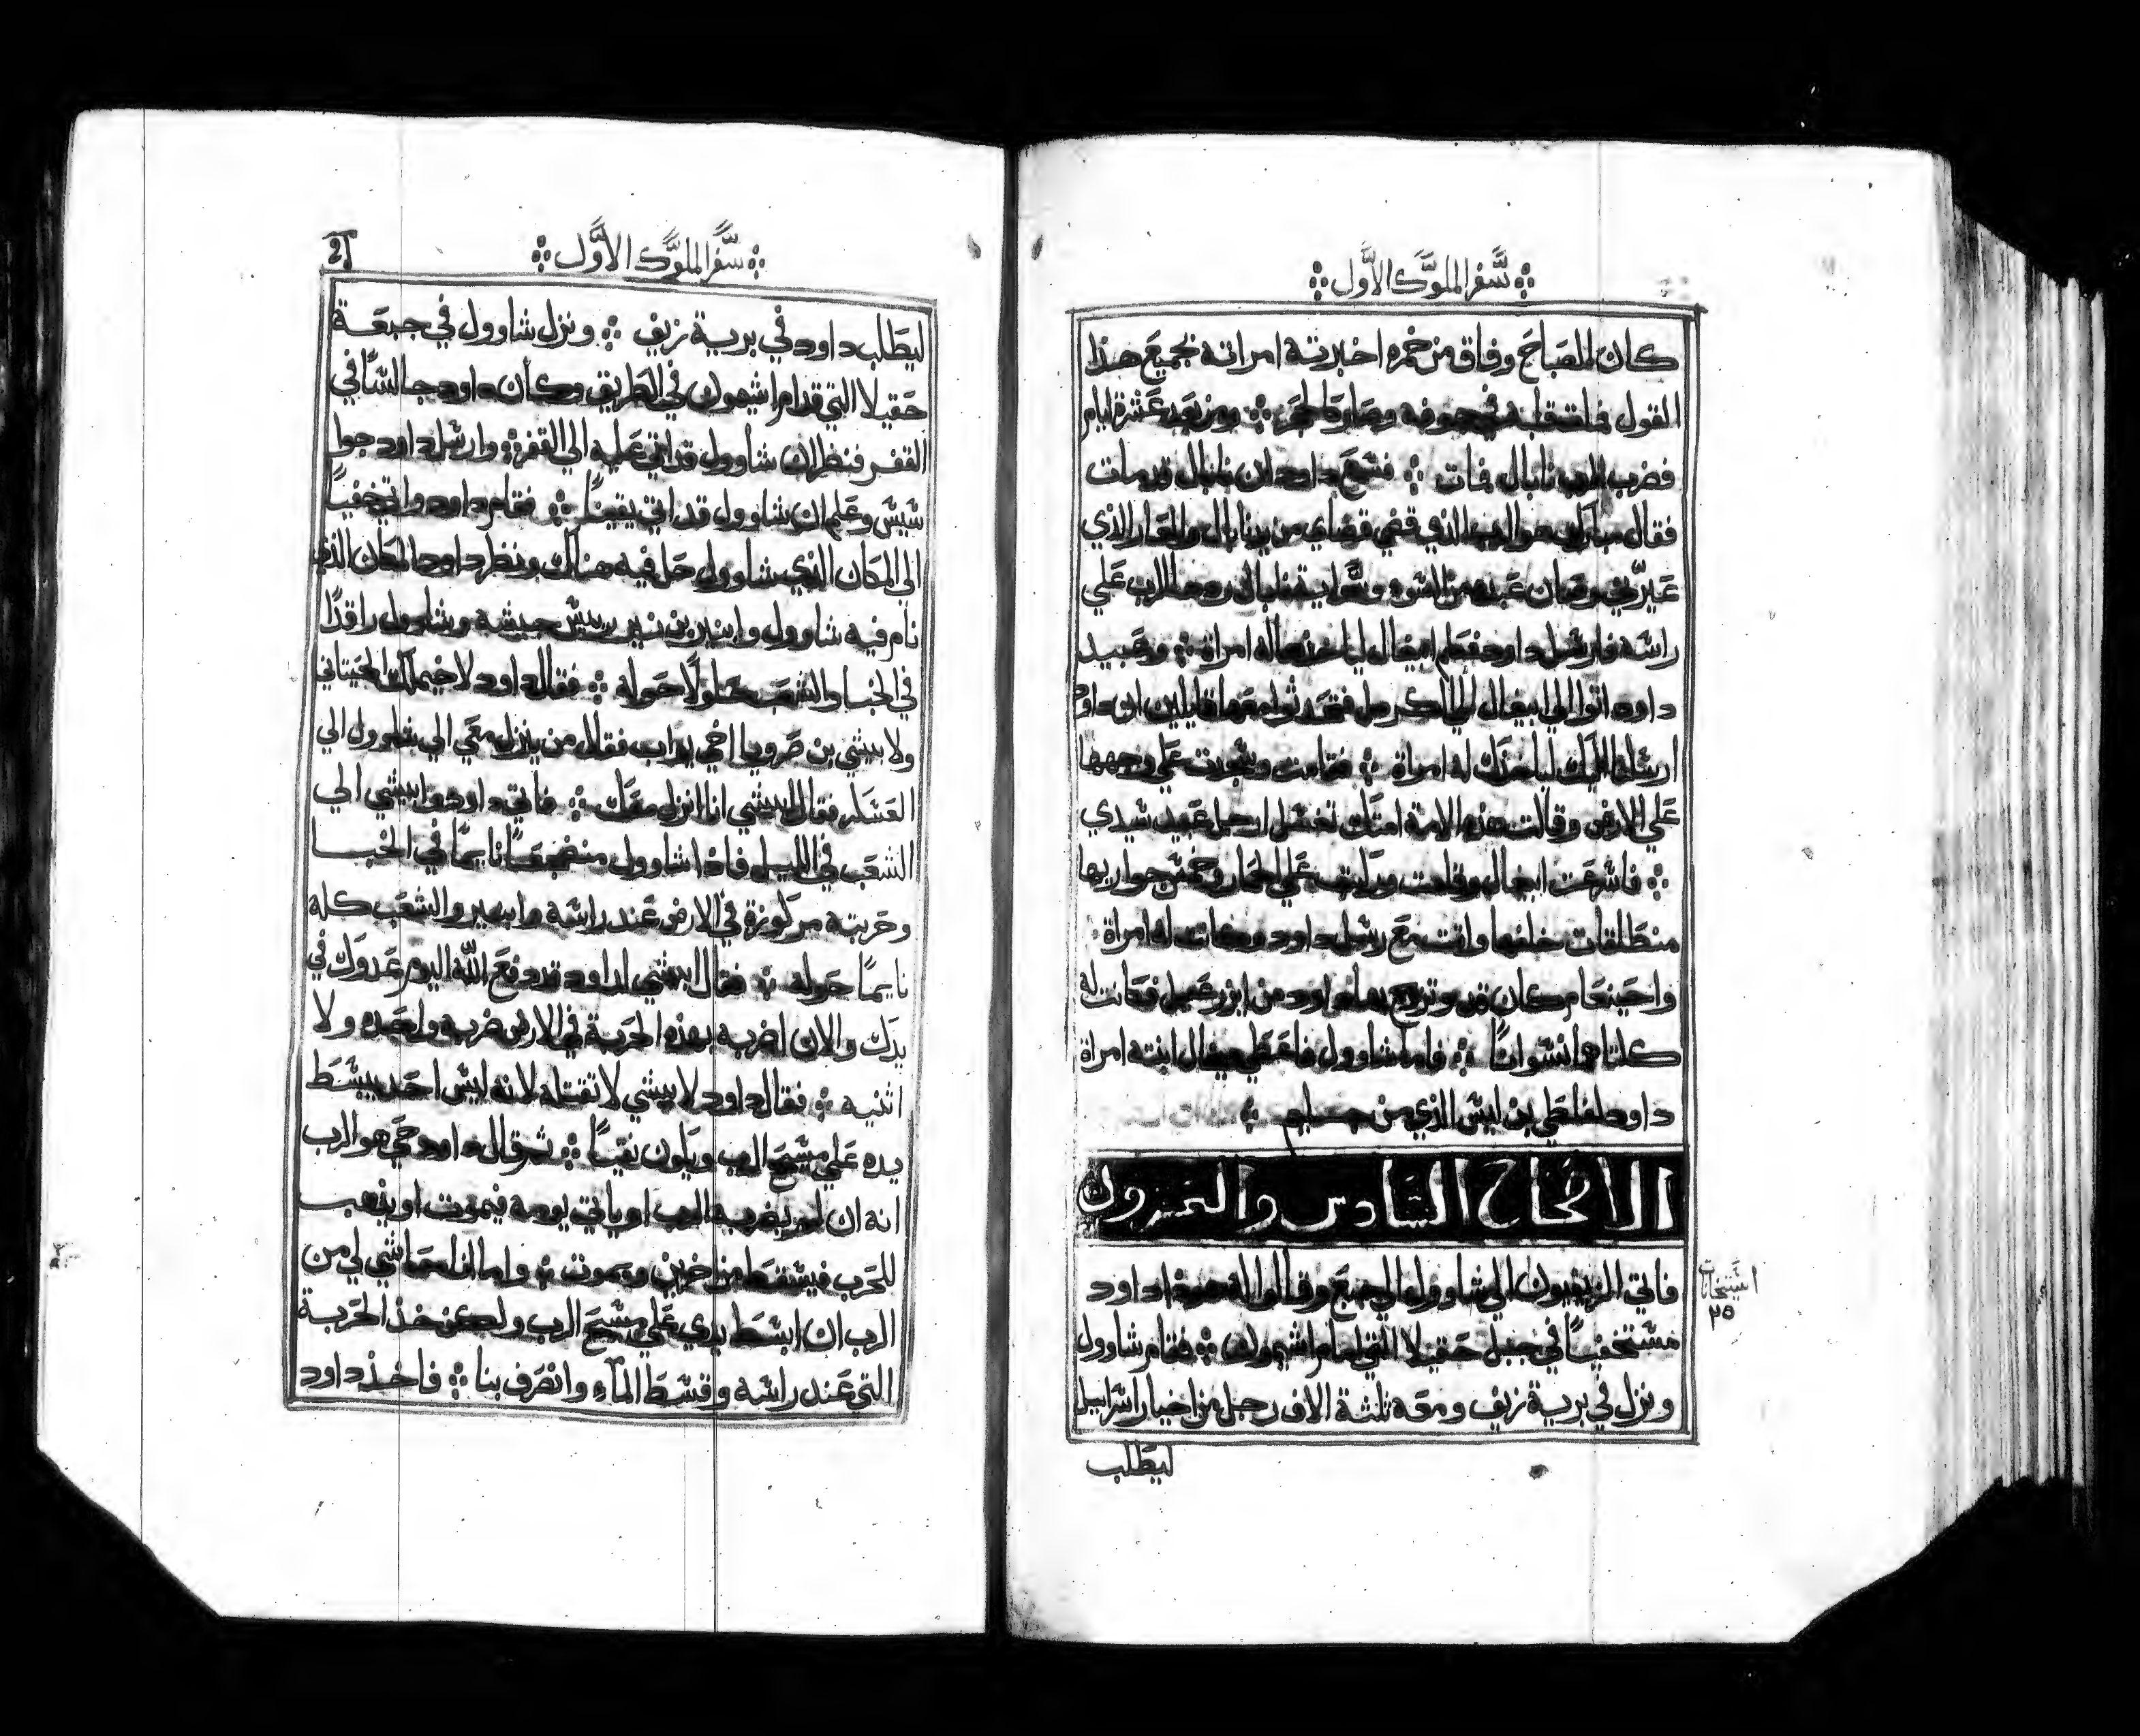 سفر الملوك الاول
كان الصباح وفاق من خمره اخبرته امراته بجميع هذا
القول فمات قلبه في جوفه وصار كالحجر ومن بعد عشرة ايام
فضرب الرب نابال فمات فسمع داود ان نابال قد مات
فقال مبارك هو الرب الذي قضي قضاي من يد نابال والعار الذي
عيرني وصان عبده من السوء وسواية نابال رد الرب علي
راسه فارسل داود فكلم ابيغال لياخذها له امراة وعبيد
داود اتوا الي ابيغال الي الكرمل فتحدثوا معها قايلين ان داود
ارسلنا اليك لياخذك له امراة فقامت وسجدت علي وجهها
علي الارض وقالت هذه الامة امتك تغسل ارجل عبيد سيدي
فاسرعت ابيغال وقامت وركبت علي الحمار وخمس جواريها
منطلقات خلفها واتت مع رسل داود وكانت له امراة
واحينعام كان قد تزوج بها داود من ايزرعيل فكانت له
كلتاهما نسوانا فاما شاوول فاعطي ميخال ابنته امراة
داود لفلطي بن ليس الذي من جليم
الاصحاح السادس والعشرون
فاتي الزيفيون الي شاوول الي جبع وقالوا له هوذا داود
مستخفيا في جبل حقيلا التي امام اشيمون فقام شاوول
ونزل في برية زيف ومعه ثلثة الاف رجل من اخيار اسراييل
ليطلب
استيخانات
٢٥
سفر الملوك الاول
ليطلب داود في برية زيف ونزل شاوول في جبعة
حقيلا التي قدام اشيمون في الطريق وكان داود جالسا في
القفر فنظر ان شاوول قد اتي عليه الي القفر وارسل داود جوا
سيس وعلم ان شاوول قد اتي يقينا فقام داود واتي خفيا
الي المكان الذي شاوول حل فيه هناك ونظر داود المكان الذي
نام فيه شاوول وابنير بن نير رييس جيشه وشاوول راقدا
في الخبا والشعب حلولا حوله فقال داود لاخيمالك الحيتاني
ولابيشي بن صرويا اخي يواب فقال من ينزل معي الي شاوول الي
العسكر فقال ابيشي انا انزل معك فاتي داود وابيشي الي
الشعب في الليل فاذا شاوول منضجعا نايما في الخبا
وحربته مركوزة في الارض عند راسه وابنير والشعب كله
نايما حوله فقال ابيشي لداود قد دفع الله اليوم عدوك في
يدك والان اضربه بهذه الحربة في الارض ضربه واحده ولا
اثنيه فقال داود لابيشي لا تقتله لانه ليس احد يبسط
يده علي مسيح الرب ويكون نقيا ثم قال داود حي هو الرب
انه ان لم يضربه الرب او ياتي يومه فيموت او يذهب
للحرب فيسقط من اخرين ويموت واما انا حاشي لي من
الرب ان ابسط يدي علي مسيح الرب ولكن خذ الحربة
التي عند راسه وقسط المآء وانصرف بنا فاخذ داود